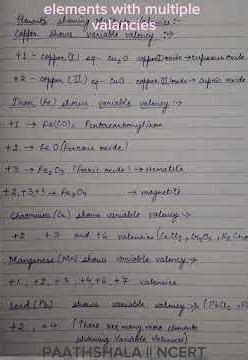 elements with multiple
valancies
Elements showing
Copper shows variable valency :->
+1 - copper (I) eg - Cu2O copper(I)oxide → cuprous oxide
+2 - copper (II) eg - CuO copper(II)oxide → cupric oxide
Iron (Fe) shows variable valency :->
+1 → Fe(CO)5 Pentacarbonyliron
+2 → FeO (ferrous oxide)
+3 → Fe2O3 (ferric oxide) → Hematite
+2,+3,+3 → Fe3O4 → magnetite
Chromium (Cr) shows variable valency :->
+2 +3 and +6 valencies (CrCl2, Cr2O3,
Manganese (Mn) shows variable valency :->
+1, +2, +3, +4, +6, +7 valencies
Lead (Pb) shows variable valency :-> (PbCl2,
+2, +4 (There are many more elements
showing Variable Valencies)
PAATHSHALA || NCERT